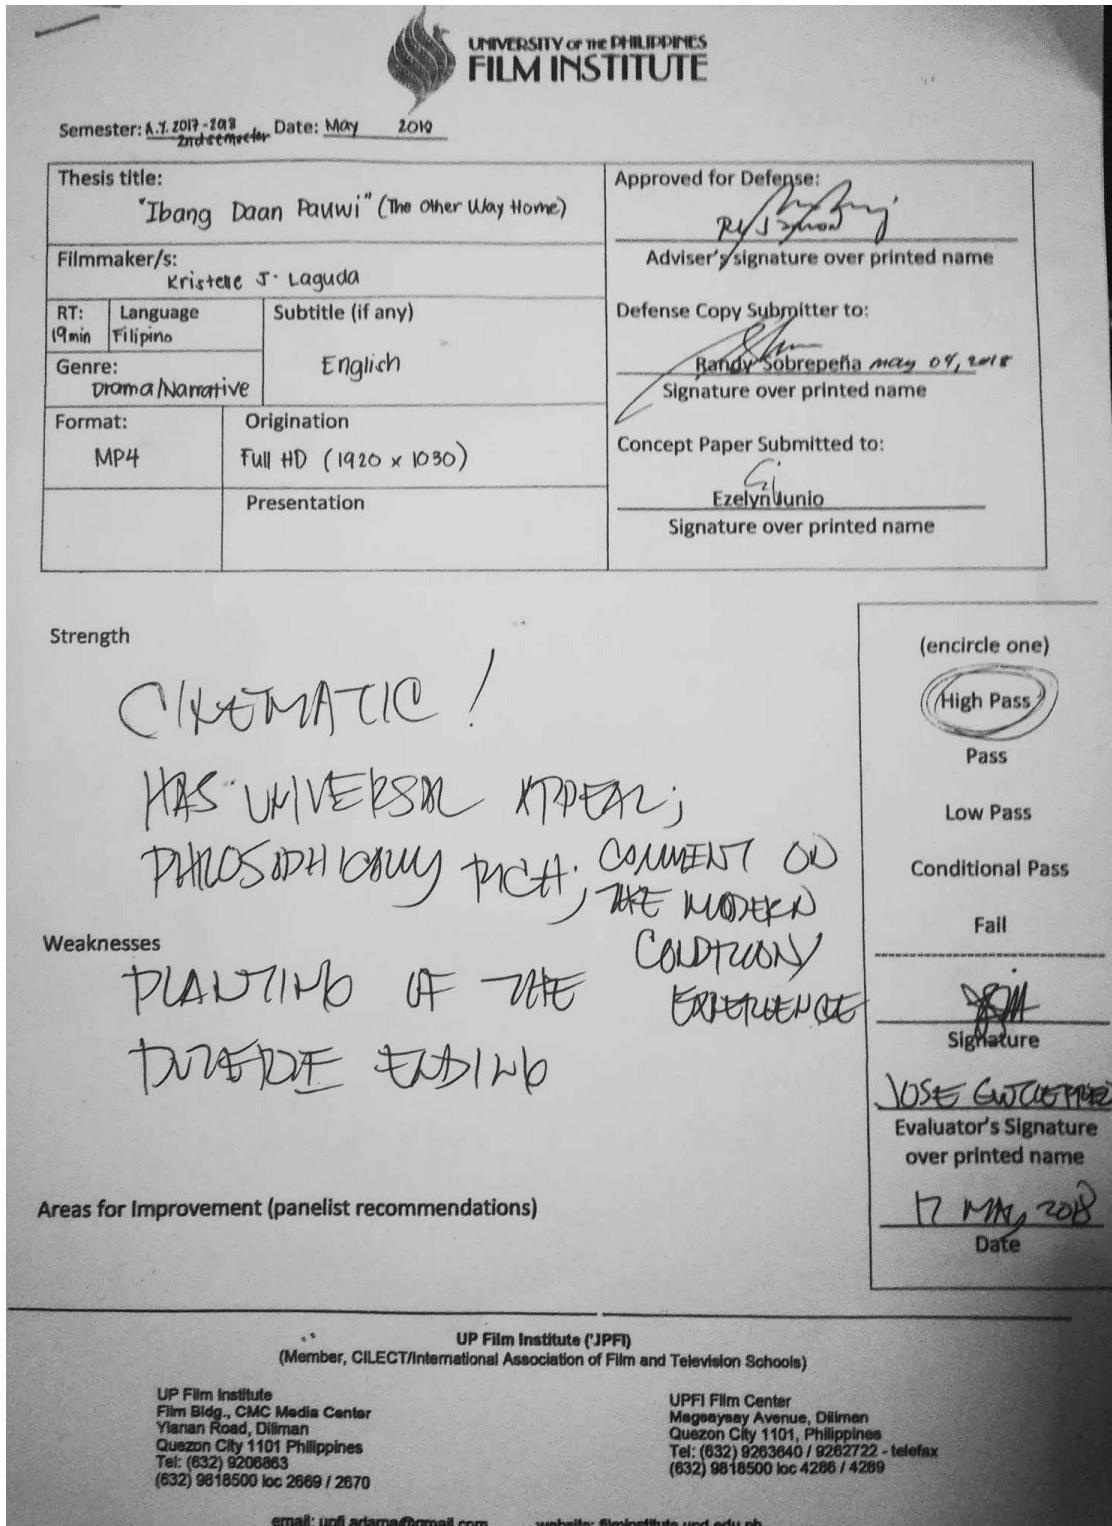 UNIVERSITY OF THE PHILIPPINES
FILM INSTITUTE
Semester: A.Y. 2017-2018 Date: May 2018
2nd semester
Thesis title:
"Ibang Daan Pauwi" (The Other Way Home)
Filmmaker/s:
Kristelle J. Laguda
RT: Language
19min Filipino
Subtitle (if any)
English
Genre:
Drama/Narrative
Format:
MP4
Origination
Full HD (1920 x 1030)
Presentation
Approved for Defense:
Adviser's signature over printed name
Defense Copy Submitter to:
Randy Sobrepeña may 04, 2018
Signature over printed name
Concept Paper Submitted to:
Ezelyn Junio
Signature over printed name
Strength
CINEMATIC!
HAS UNIVERSAL APPEAL;
PHILOSOPHICALLY RICH; COMMENT ON
THE MODERN
CONDITION/
EXPERIENCE
Weaknesses
PLANTING OF THE
ENDING
Areas for Improvement (panelist recommendations)
(encircle one)
High Pass
Pass
Low Pass
Conditional Pass
Fail
Signature
JOSE GUTIERREZ
Evaluator's Signature
over printed name
17 MAY 2018
Date
UP Film Institute ('JPFI)
(Member, CILECT/International Association of Film and Television Schools)
UP Film Institute
Film Bldg., CMC Media Center
Ylanan Road, Diliman
Quezon City 1101 Philippines
Tel: (632) 9206863
(632) 9818500 loc 2669 / 2670
UPFI Film Center
Magsaysay Avenue, Diliman
Quezon City 1101, Philippines
Tel: (632) 9263640 / 9262722 - telefax
(632) 9818500 loc 4286 / 4289
email: upfi.adama@gmail.com website: filminstitute.upd.edu.ph